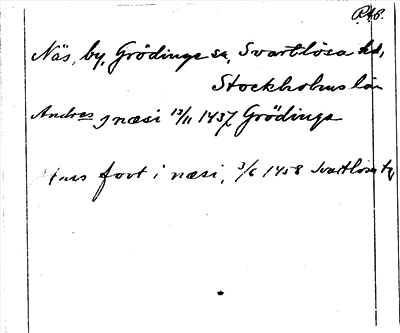 R.A.P.
Näs, by, Grödinge sn, Svartlösa hd,
Stockholms län
Andres j næsi 13/11 1437 Grödinge
fort i næsi, 3/6 1458 Svartlösa